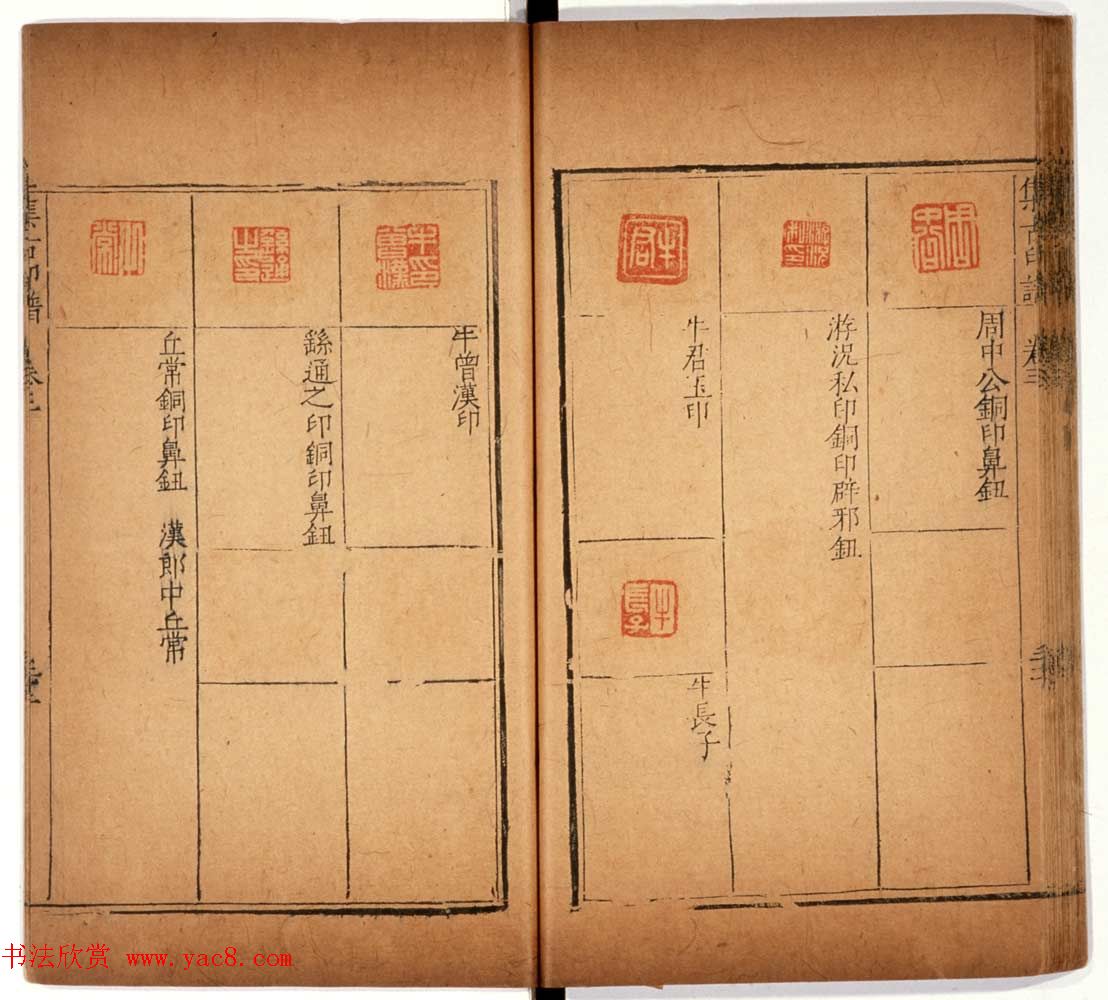 集古印譜 卷三
周中公銅印鼻鈕
游況私印銅印辟邪鈕
牛君玉印
牛長子
牛曾漢印
緐通之印銅印鼻鈕
丘常銅印鼻鈕 漢郎中丘常
集古印譜
书法欣赏 www.yac8.com